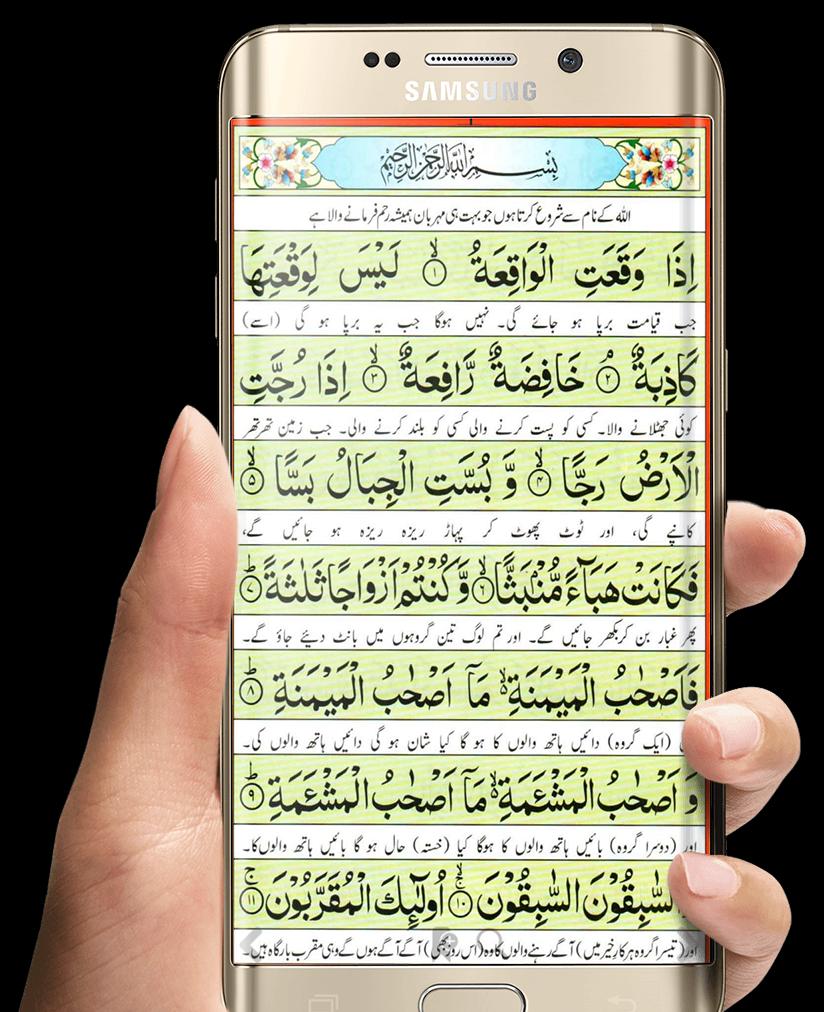 SAMSUNG
بِسْمِ اللهِ الرَّحْمٰنِ الرَّحِيْمِ
اللہ کے نام سے شروع کرتا ہوں جو بہت ہی مہربان ہمیشہ رحم فرمانے والا ہے
اِذَا وَقَعَتِ الْوَاقِعَةُ ۙ﴿۱﴾ لَيْسَ لِوَقْعَتِهَا
جب قیامت برپا ہو جائے گی۔ نہیں ہوگا جب یہ برپا ہو گی (اسے)
كَاذِبَةٌ ۘ﴿۲﴾ خَافِضَةٌ رَّافِعَةٌ ۙ﴿۳﴾ اِذَا رُجَّتِ
کوئی جھٹلانے والا۔ کسی کو پست کرنے والی کسی کو بلند کرنے والی۔ جب زمین تھرتھر
الْاَرْضُ رَجًّا ۙ﴿۴﴾ وَّ بُسَّتِ الْجِبَالُ بَسًّا ۙ﴿۵﴾
کانپے گی، اور ٹوٹ پھوٹ کر پہاڑ ریزہ ریزہ ہو جائیں گے،
فَكَانَتْ هَبَآءً مُّنْۢبَثًّا ۙ﴿۶﴾ وَّ كُنْتُمْ اَزْوَاجًا ثَلٰثَةً ؕ﴿۷﴾
پھر غبار بن کر بکھر جائیں گے۔ اور تم لوگ تین گروہوں میں بانٹ دیئے جاؤ گے۔
فَاَصْحٰبُ الْمَيْمَنَةِ ۙ۬ مَاۤ اَصْحٰبُ الْمَيْمَنَةِ ؕ﴿۸﴾
(ایک گروہ) دائیں ہاتھ والوں کا ہو گا کیا شان ہو گی دائیں ہاتھ والوں کی۔
وَ اَصْحٰبُ الْمَشْـَٔمَةِ ۙ۬ مَاۤ اَصْحٰبُ الْمَشْـَٔمَةِ ؕ﴿۹﴾
اور (دوسرا گروہ) بائیں ہاتھ والوں کا ہوگا کیا (خستہ) حال ہو گا بائیں ہاتھ والوں کا۔
السّٰبِقُوْنَ السّٰبِقُوْنَ ۚۙ﴿۱۰﴾ اُولٰٓئِكَ الْمُقَرَّبُوْنَ ۚ﴿۱۱﴾
اور (تیسرا گروہ ہر کار خیر میں) آگے رہنے والوں کا وہ (اس روز بھی) آگے آگے ہوں گے وہی مقرب بارگاہ ہیں۔